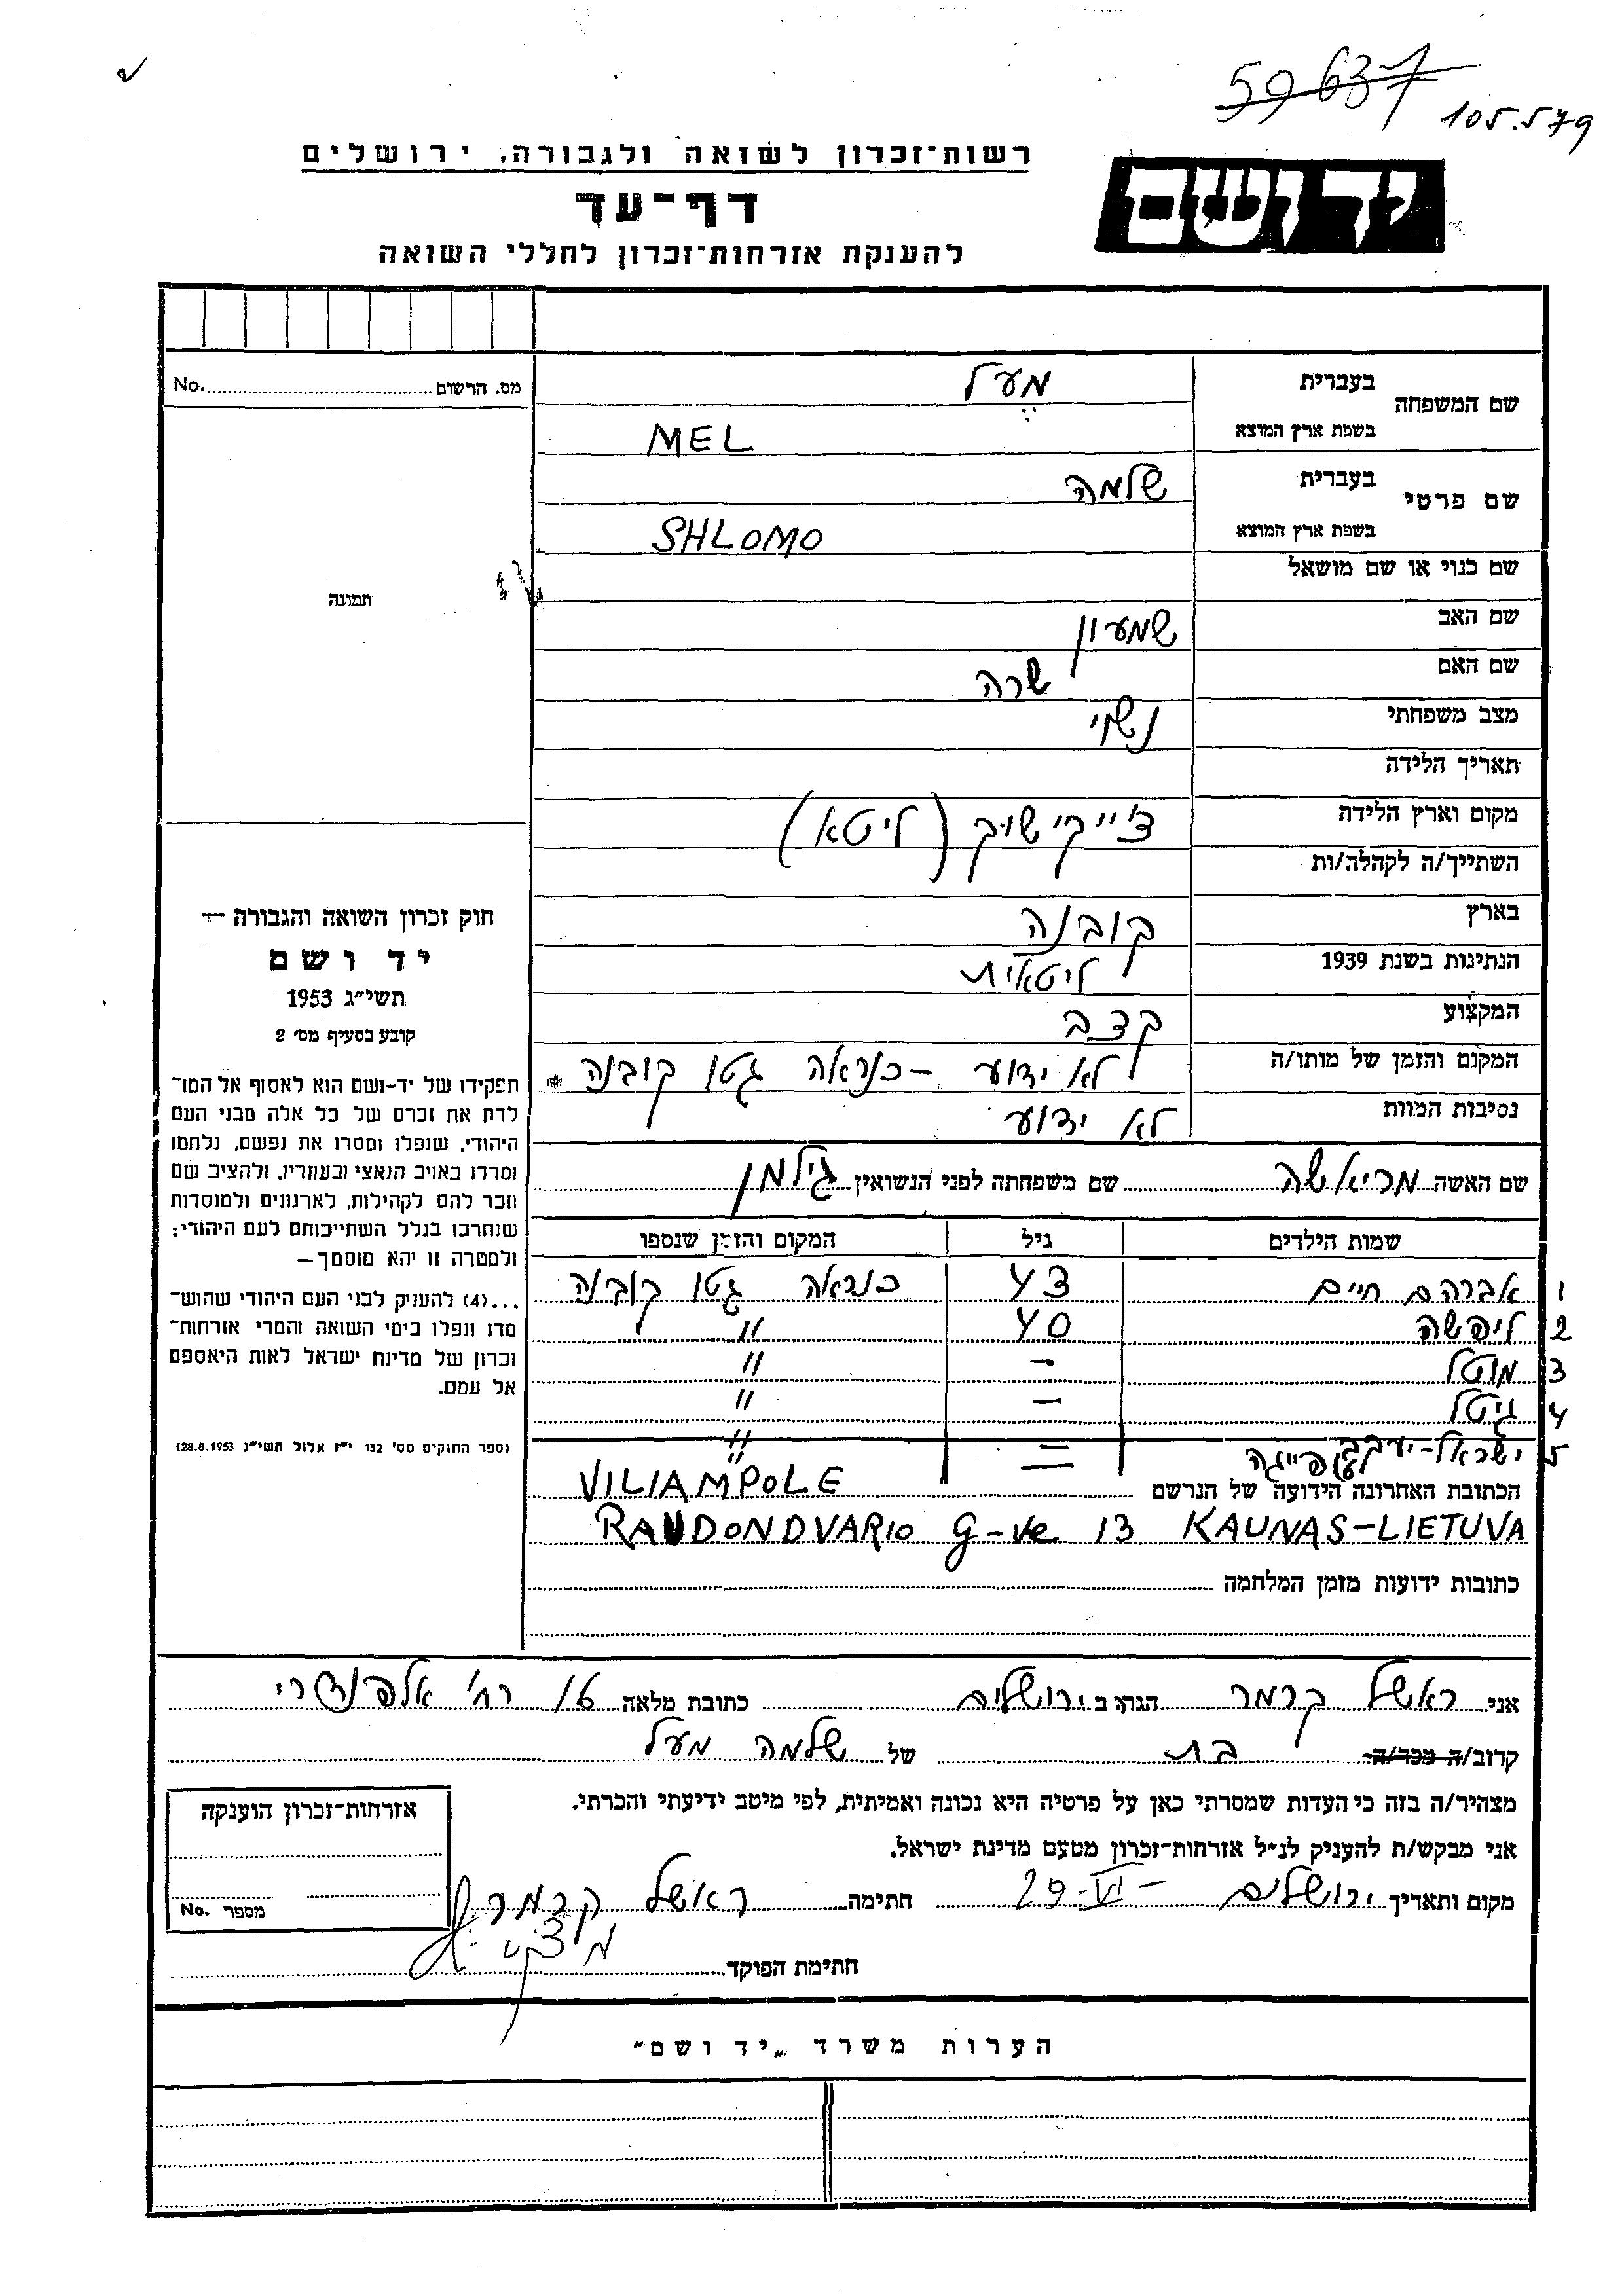 59637
105.579
רשות־זכרון לשואה ולגבורה, ירושלים
יד ושם
דף־עד
להענקת אזרחות־זכרון לחללי השואה
מס. הרשום No.
תמונה
שם המשפחה
בעברית מעל
בשפת ארץ המוצא MEL
שם פרטי
בעברית שלמה
בשפת ארץ המוצא SHLOMO
שם כנוי או שם מושאל
שם האב שמעון
שם האם שרה
מצב משפחתי נשוי
תאריך הלידה
מקום וארץ הלידה צ'ייקישוק (ליטא)
השתייך/ה לקהלה/ות
בארץ קובנה
הנתינות בשנת 1939 ליטאית
המקצוע קצב
המקום והזמן של מותו/ה לא ידוע – כנראה גטו קובנה
נסיבות המוות לא ידוע
שם האשה מריאשה שם משפחתה לפני הנשואין גילמן
שמות הילדים גיל המקום והזמן שנספו
1 אברהם חיים 43 כנראה גטו קובנה
2 ליפשה 40 "
3 מוטל – "
4 גיטל – "
5 ישראל-יעקב – "
פייגה – "
הכתובת האחרונה הידועה של הנרשם VILIAMPOLE
RAUDONDVARIO g-ve 13 KAUNAS-LIETUVA
כתובות ידועות מזמן המלחמה
חוק זכרון השואה והגבורה —
יד ושם
תשי״ג 1953
קובע בסעיף מס׳ 2
תפקידו של יד-ושם הוא לאסוף אל המו־
לדת את זכרם של כל אלה מבני העם
היהודי, שנפלו ומסרו את נפשם, נלחמו
ומרדו באויב הנאצי ובעוזריו, ולהציב שם
וזכר להם לקהילות, לארגונים ולמוסדות
שנחרבו בגלל השתייכותם לעם היהודי;
ולמטרה זו יהא מוסמך —
...(4) להעניק לבני העם היהודי שהוש־
מדו ונפלו בימי השואה והמרי אזרחות־
זכרון של מדינת ישראל לאות היאספם
אל עמם.
(ספר החוקים מס׳ 132 י״ז אלול תשי״ג 28.8.1953)
אני ראשל קרמר הגר/ה ב ירושלים כתובת מלאה רח' אלפנדרי 16
קרוב/ה מכר/ה בת של שלמה מעל
מצהיר/ה בזה כי העדות שמסרתי כאן על פרטיה היא נכונה ואמיתית, לפי מיטב ידיעתי והכרתי.
אני מבקש/ת להעניק לנ״ל אזרחות־זכרון מטעם מדינת ישראל.
מקום ותאריך ירושלים 29-VI- חתימה ראשל קרמר
חתימת הפוקד
אזרחות־זכרון הוענקה
מספר No.
הערות משרד „יד ושם״